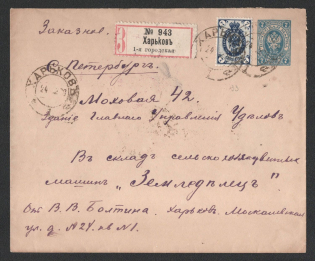 Заказное.
№ 943
Харьковъ
1-я городская
С Петербургъ.
ХАРЬКОВЪ
Моховая 42.
Зданіе Главнаго Управленія Удѣловъ
Въ складъ сельскохозяйственныхъ
машинъ „Земледѣлецъ"
Отъ В. В. Болтина. Харьковъ. Москалевская
ул. д. №24. кв №1.